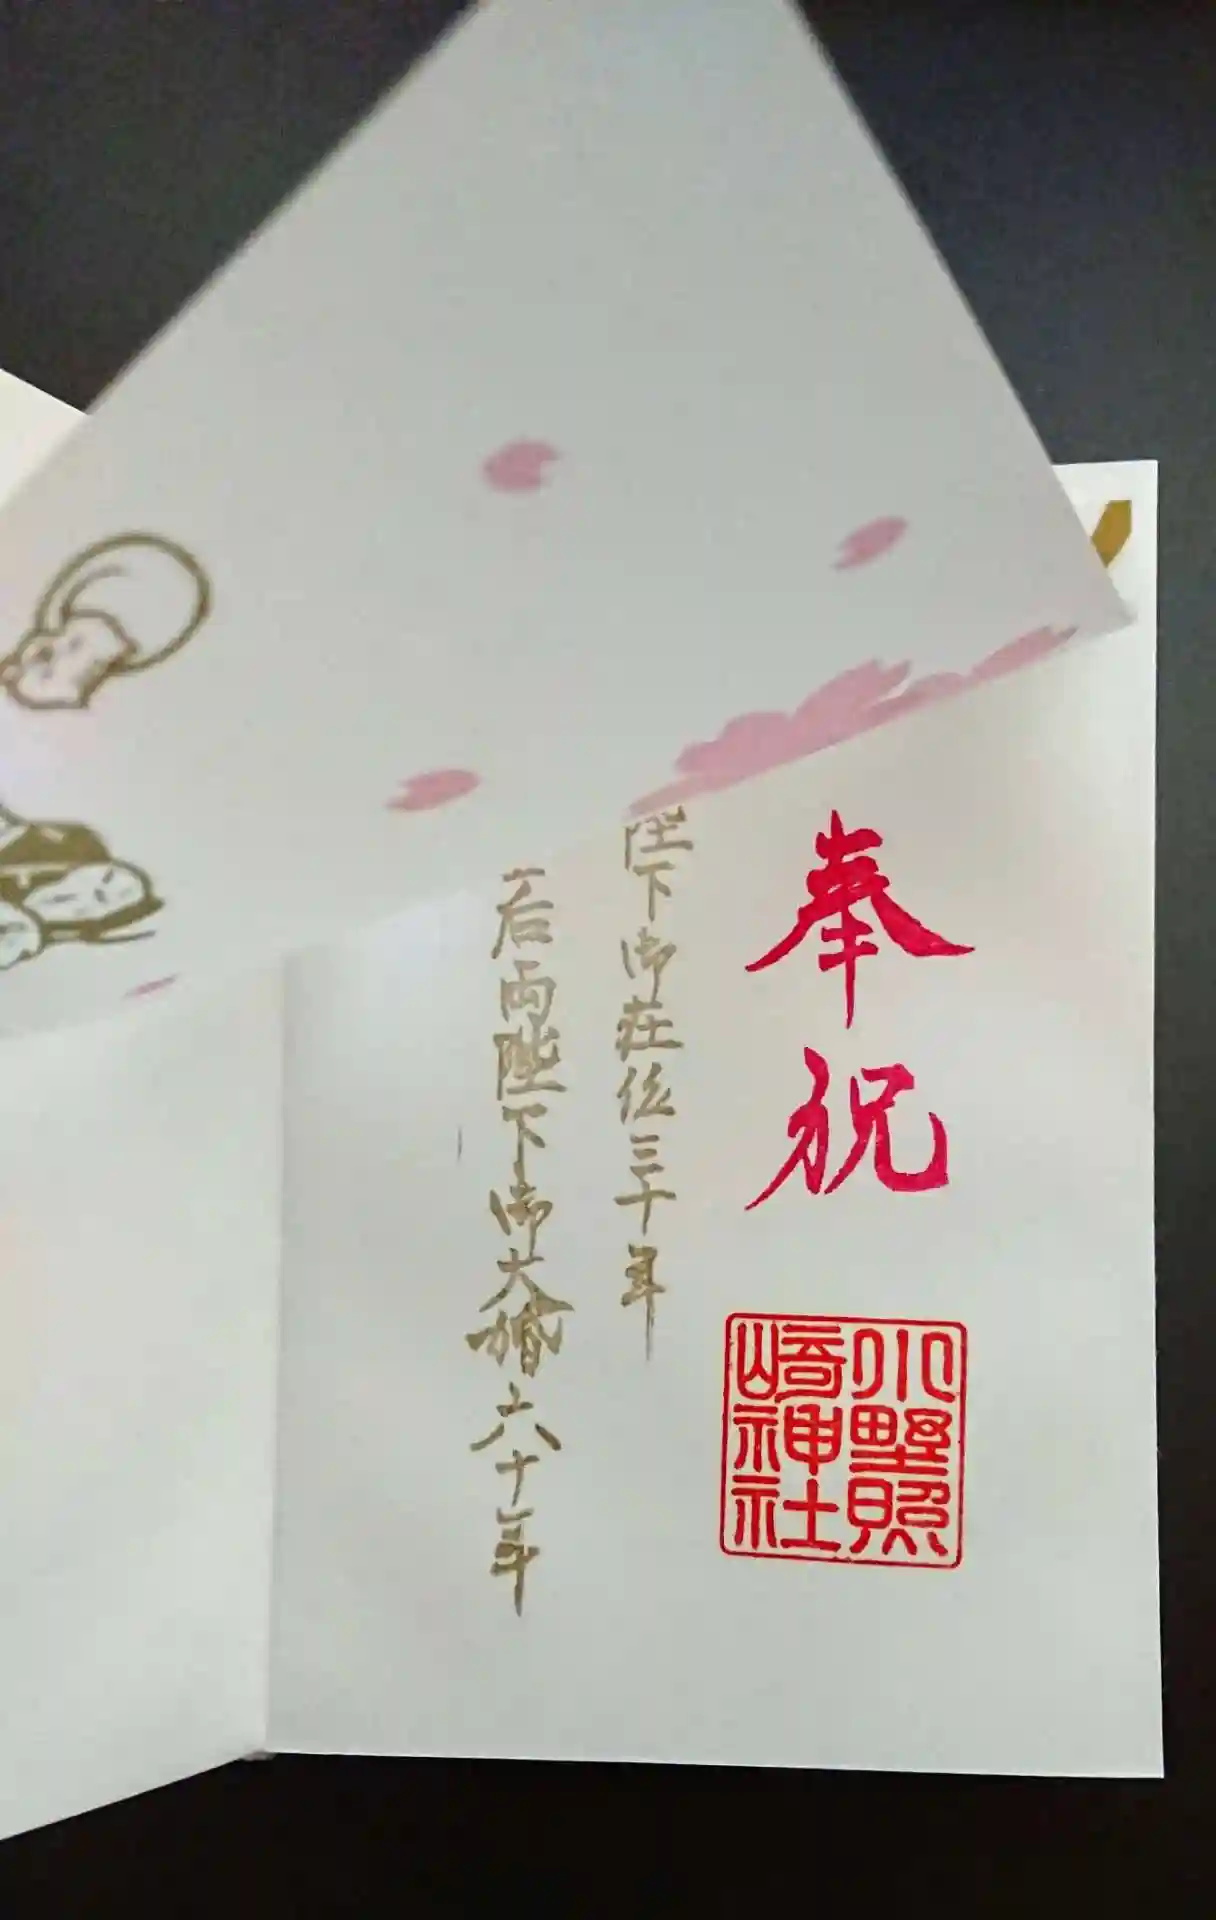 奉祝
陛下御在位三十年
后両陛下御大婚六十年
小野照
崎神社